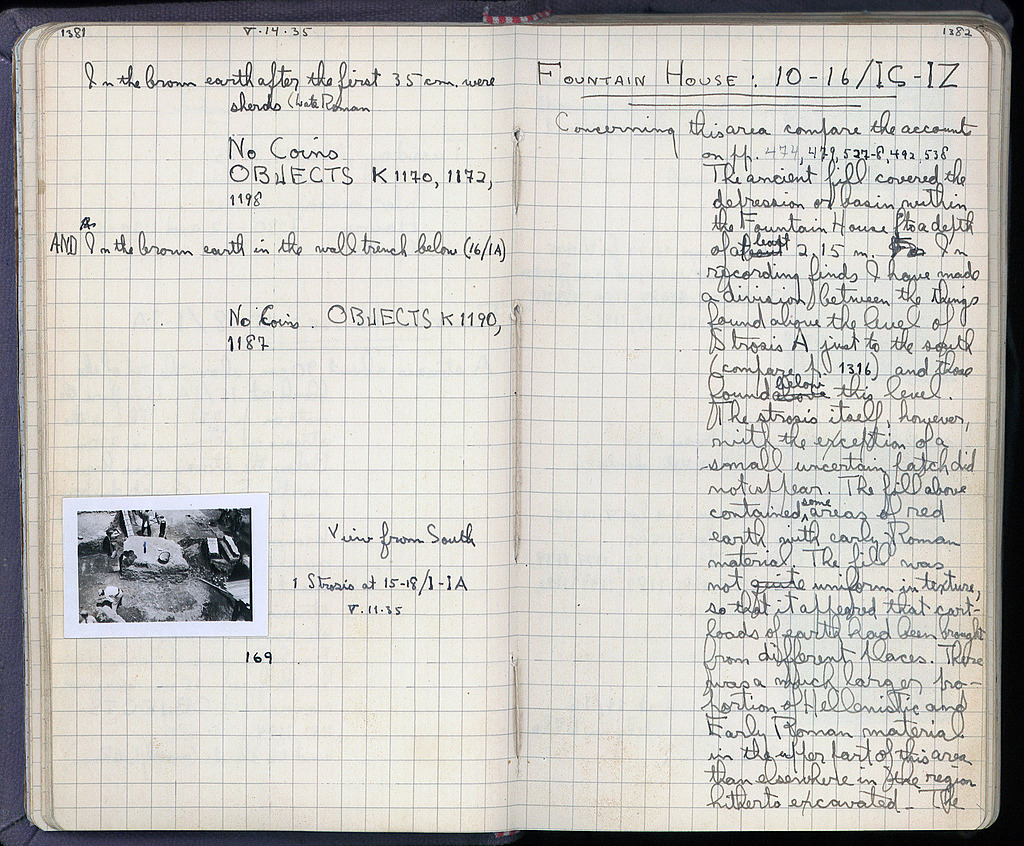 1381
V.14.35
In the brown earth after the first 35 cm. were
sherds (Late Roman
No Coins
OBJECTS K 1170, 1172,
1198
AND In the brown earth in the wall trench below (16/IA)
No Coins. OBJECTS K 1190,
1187
View from South
1 Strosis at 15-18/I-IA
V.11.35
169
1382
FOUNTAIN HOUSE: 10-16/IΣ-IZ
Concerning this area compare the account
on pp. 474, 479, 527-8, 492, 538
The ancient fill covered the
depression or basin within
the Fountain House to a depth
of at least 2.15 m. In
recording finds I have made
a division between the things
found above the level of
Strosis A just to the south
(compare p. 1316) and those
found below this level.
The strosis itself, however,
with the exception of a
small uncertain patch did
not appear. The fill above
contained some areas of red
earth with early Roman
material. The fill was
not quite uniform in texture,
so that it appeared that cart-
loads of earth had been brought
from different places. There
was a much larger pro-
portion of Hellenistic and
Early Roman material
in the upper part of this area
than elsewhere in the region
hitherto excavated. The